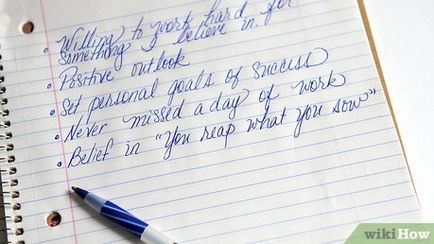 • Willing to work hard for
something I believe in.
• Positive outlook
• Set personal goals of success
• Never missed a day of work
• Belief in "You reap what you sow"
wikiHow